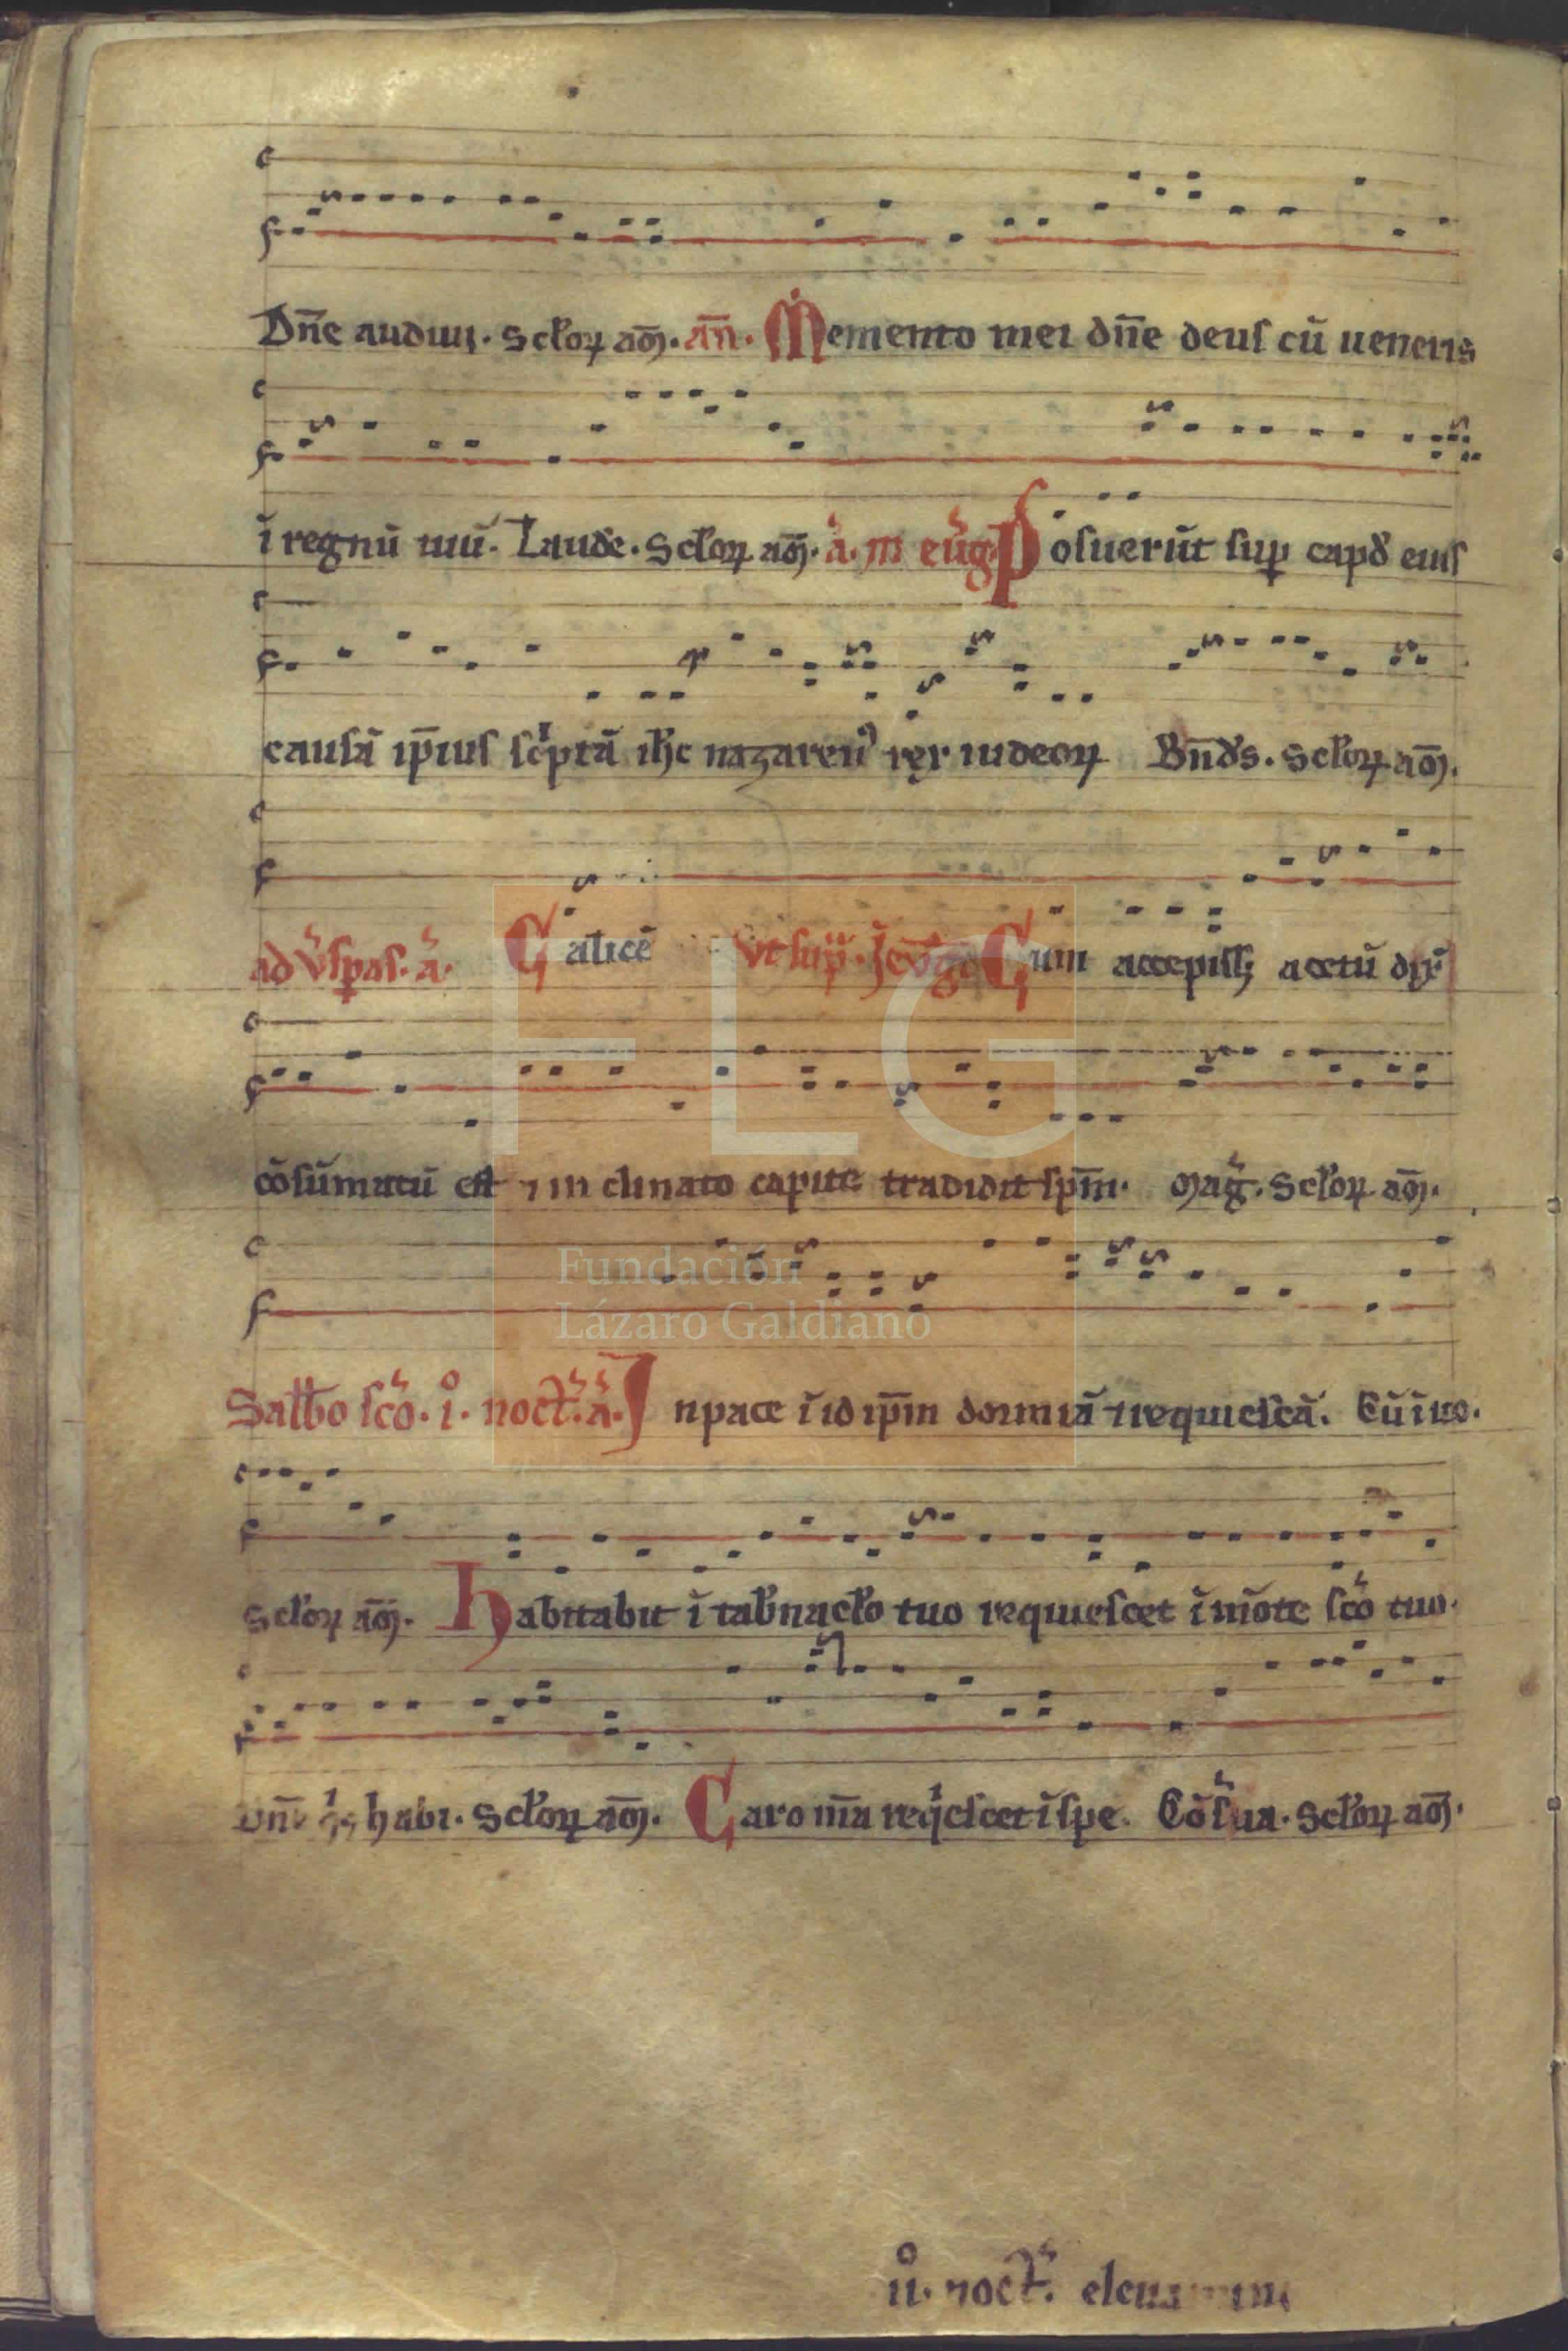 Dn̄e audiui. Scl̄oꝝ am̄. An̄. Memento mei dn̄e deus cū ueneris
ī regnū tuū. Laude. Scl̄oꝝ am̄. a. in eūg. Posuerūt suꝑ capđ eius
causā ip̄ius sc̄ptā ih̄c nazarenꝰ rex iudeoꝝ Bn̄ds. Scl̄oꝝ am̄.
ad ūꝑas. a. Calicē Vt sup̄. I eūg Cum accepiss; acetū dix̄
cōsūmatū est ⁊ in clinato capite tradidit sp̄m. Mag̃. Scl̄oꝝ am̄.
Sabb̄o sc̄o. i°. noct̄. a. In pace ī id ip̄m dormiā ⁊ requiescā. Cū īuo.
Scl̄oꝝ am̄. Habitabit ī tab̄nacl̄o tuo requiescet ī mōte sc̄o tuo.
Dn̄e q̄s habi. Scl̄oꝝ am̄. Caro m̄a req̄escet ī spe. Cōs̄ua. Scl̄oꝝ am̄.
ii°. noct̄.
FLG
Fundación
Lázaro Galdiano